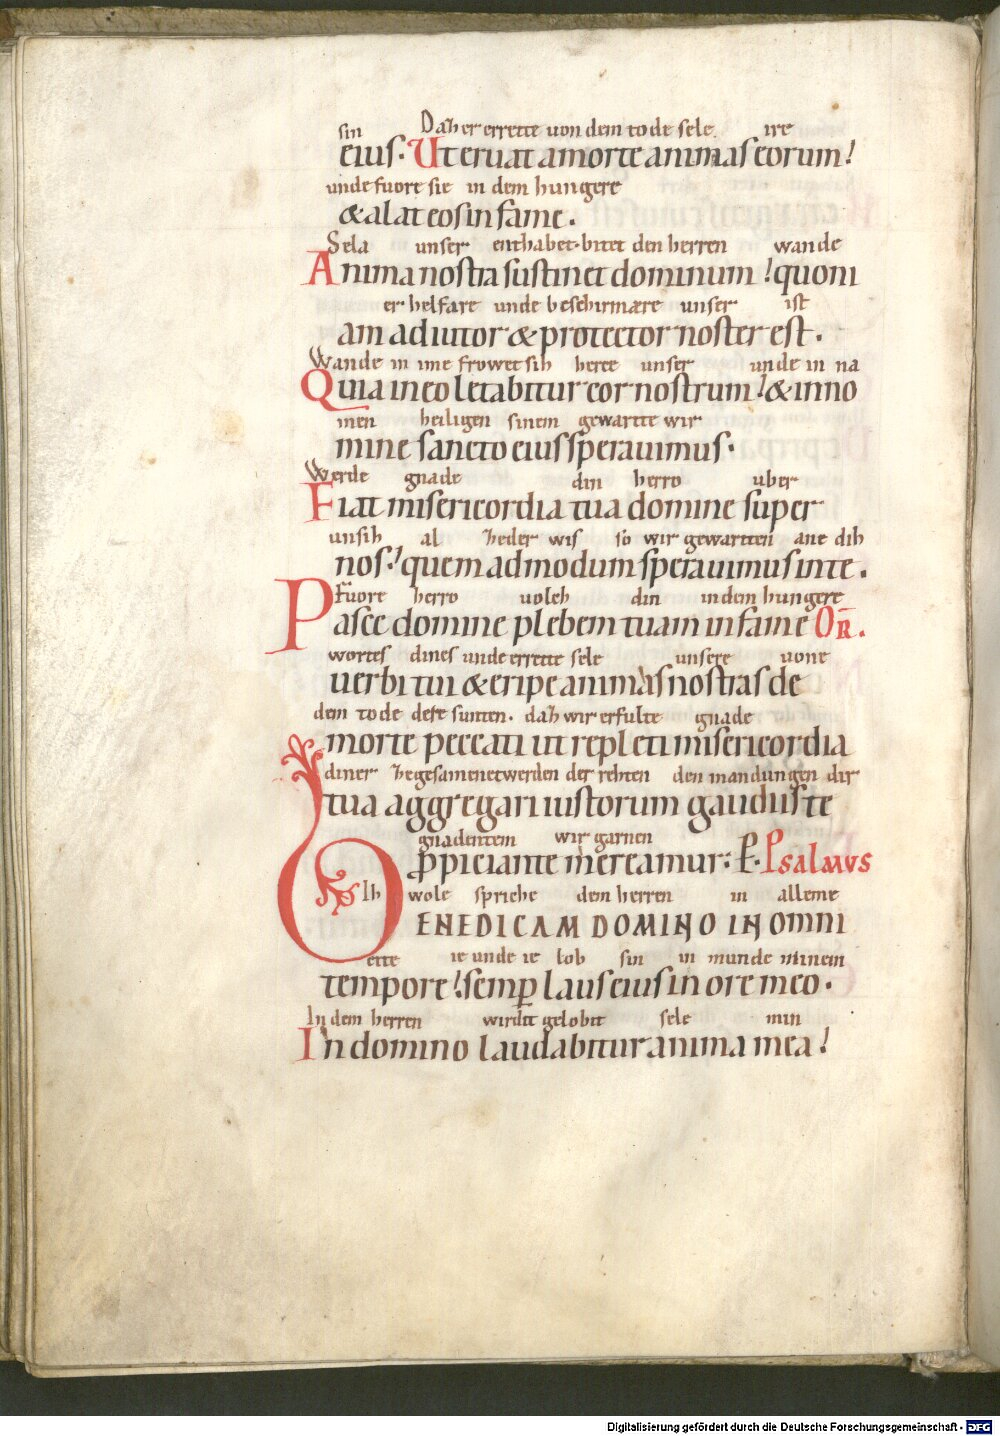 sin Daz er errette von dem tode sele ire
eius. Ut eruat a morte animas eorum!
unde fuore sie in dem hungere
& alat eos in fame.
Sela unser enthabet bitet den herren wande
Anima nostra sustinet dominum! quoni
er helfare unde beschirmære unser ist
am adiutor & protector noster est.
Wande in ime frowet sih herte unser unde in na
Quia in eo letabitur cor nostrum! & in no
men heiligen sinem gewartte wir
mine sancto eius speravimus.
Werde gnade din herro uber
Fiat misericordia tua domine super
unsih al zeder wis so wir gewartten ane dih
nos! quemadmodum speravimus in te.
Fuore herro volch din in dem hungere
Pasce domine plebem tuam in fame OR.
wortes dines unde errette sele unsere vone
verbi tui & eripe animas nostras de
dem tode dere sunten. daz wir erfulte gnade
morte peccati ut repleti misericordia
diner zegesamenetwerden der rehten den mandungen dir
tua aggregari iustorum gaudiis te
gnadentem wir garnen
p̱piciante mereamur: P. Psalmus
Ih wole spriche dem herren in alleme
BENEDICAM DOMINO IN OMNI
cite ie unde ie lob sin in munde minem
tempore! semp̱ laus eius in ore meo.
In dem herren wirdit gelobit sele min
In domino laudabitur anima mea!
Digitalisierung gefördert durch die Deutsche Forschungsgemeinschaft - DFG